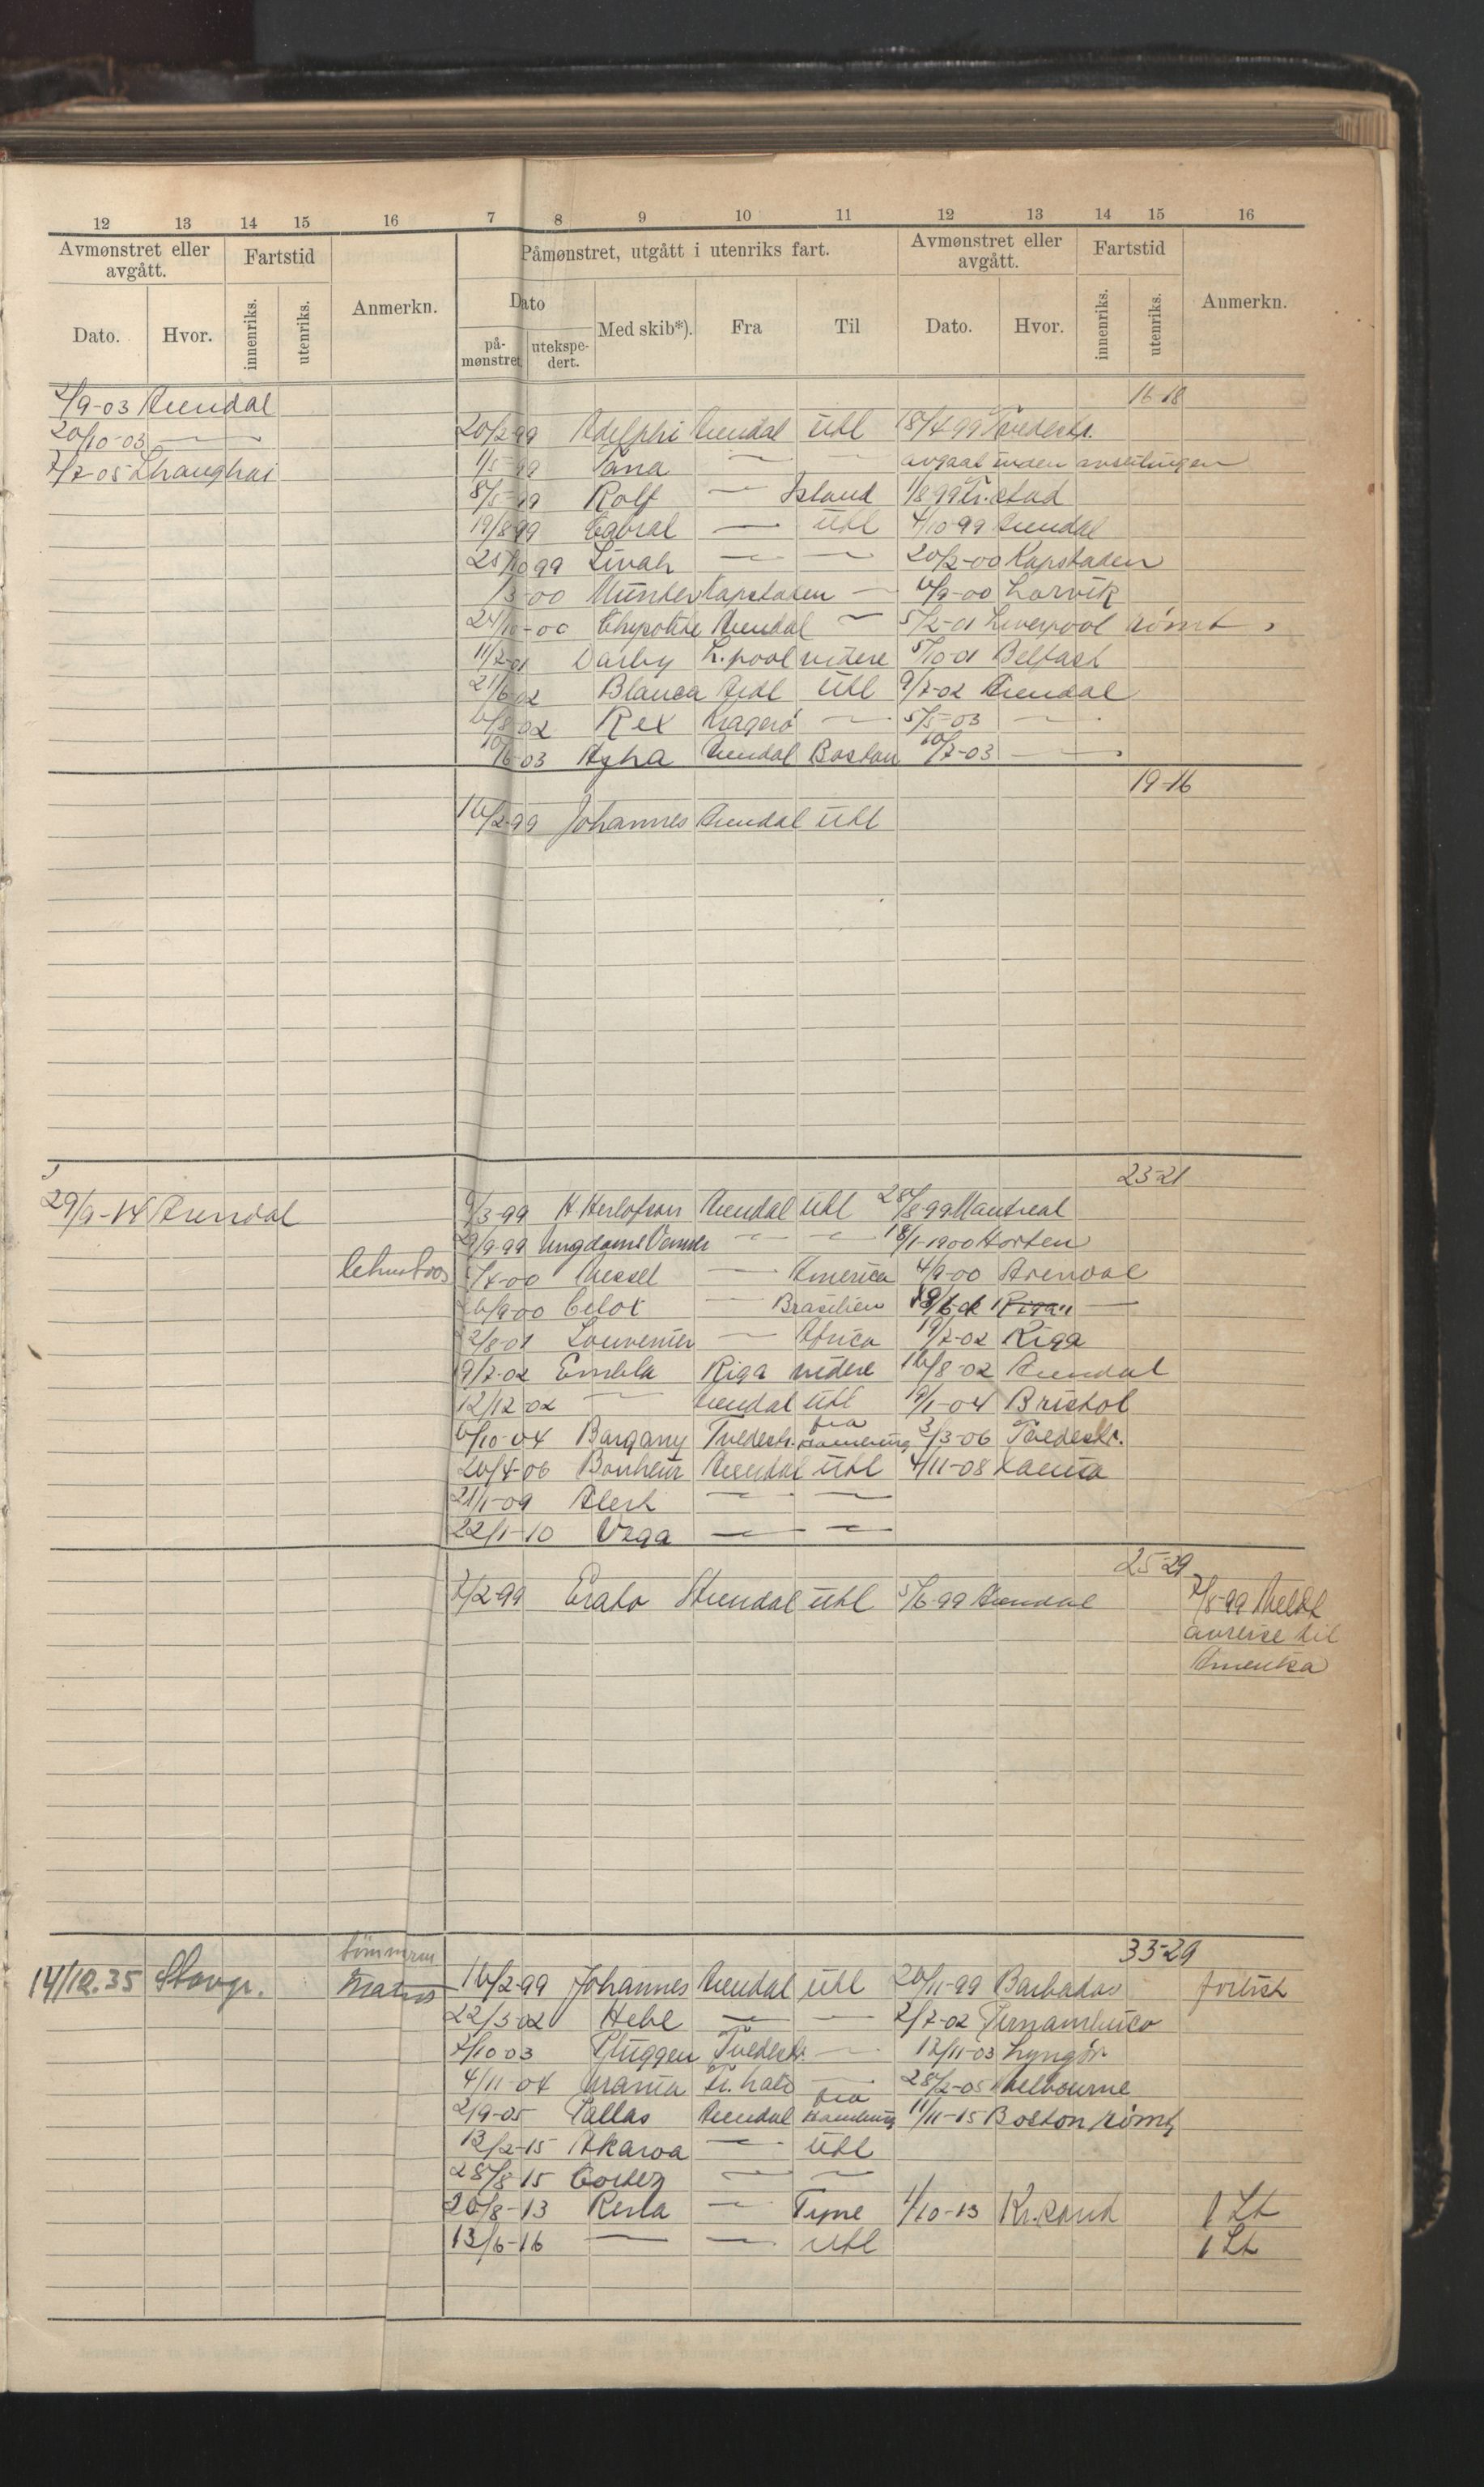 12 13 14 15 16 7 8 9 10 11 12 13 14 15 16
Avmønstret eller avgått. Fartstid Anmerkn. Påmønstret, utgått i utenriks fart. Avmønstret eller avgått. Fartstid Anmerkn.
Dato. Hvor. innenriks. utenriks. Dato Med skib*). Fra Til Dato. Hvor. innenriks. utenriks.
på-mønstret utekspe-dert.
2/9-03 Arendal 16-18
20/10-03 — 20/2 99 Adelphi Arendal Utl 18/4 99 Tvedestr.
7/7-05 Shanghai 1/5-99 — — avgaat uden
8/5-99 Rolf — Island 1/8 99 Fr.stad
19/8 99 Cabral — Utl 4/10-99 Arendal
25/10 99 Livah — — 20/2-00 Kapstaden
/3-00 Kapstaden — 6/9-00 Larvik
24/10-00 Arendal — 5/2-01 Liverpool rømt
11/2-01 Darby L.pool videre 5/10-01 Belfast
21/6 02 Blanca Ardl Utl 9/7-02 Arendal
6/8 02 Rex Kragerø — 5/5-03 —
10/6-03 Arendal Boston 10/7-03 —
19-16
16/2-99 Johannes Arendal Utl
23-21
29/9-14 Arendal /3-99 H Herlofson Arendal Utl 28/8 99 Montreal
29/9-99 Ungdoms Venner — — 18/1-1900 Horten
/4-00 — America 4/9-00 Arendal
/9-00 — Brasilien
2/8-01 Souvenier — Africa 19/7-02 Riga
19/7-02 Embla Riga videre 16/8-02 Arendal
12/12 02 — Arendal Utl 19/1-04 Bristol
6/10-04 Bargany Tvedestr. fra Hamburg 3/3-06 Tvedestr.
20/4-06 Bonheur Arendal Utl 4/11-08
21/1-09 Alert — —
22/1-10 Vega — —
25-29
7/2-99 Erato Arendal Utl 5/6-99 Arendal 7/8-99 Meldt
avreise til
Amerika
tömmerm 33-29
14/12.35 Stavgr. Matros 16/2-99 Johannes Arendal Utl 20/11-99 Barbados forlist
22/3-02 Hebe — — 2/7-02 Pernambuco
7/10 03 Pluggen Tvedestr. — 12/11-03 Lyngör
4/11-04 Urania Fr.hald — 28/2-05 Melbourne
2/9-05 Pallas Arendal fra Hamburg 11/11-15 Boston rømt
13/2-15 Akaroa — Utl
28/8 15 Cortez — —
20/8-13 Resta — Tyne 1/10-13 Kr.sand 1 Lt
13/6-16 — — Utl 1 Lt